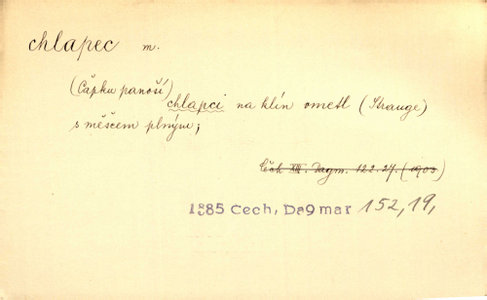 chlapec m.
(Čápku panoší) chlapci na klín ometl (Strange)
s měšcem plným;
Čch XIII. Dagm. 122. 27. (1903)
1885 Cech, Dagmar 152, 19,